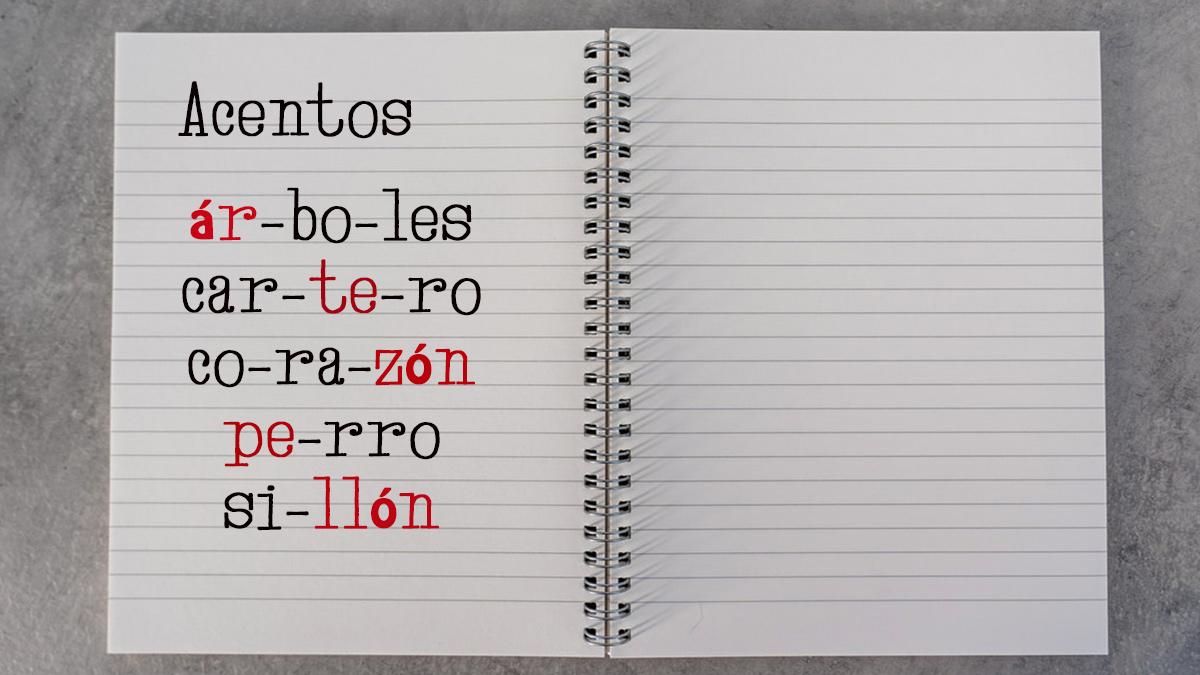 Acentos
ár-bo-les
car-te-ro
co-ra-zón
pe-rro
si-llón